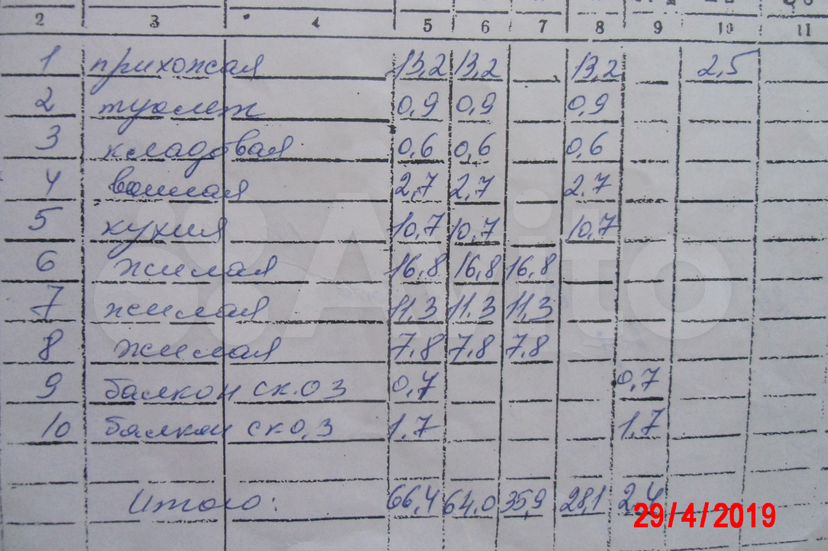 2 3 4 5 6 7 8 9 10 11
1 прихожая 13,2 13,2 13,2 2,5
2 туалет 0,9 0,9 0,9
3 кладовая 0,6 0,6 0,6
4 ванная 2,7 2,7 2.7
5 кухня 10,7 10,7 10,7
6 жилая 16,8 16,8 16,8
7 жилая 11,3 11.3 11,3
8 жилая 7.8 7.8 7.8
9 балкон ск.03 0,7 0,7
10 балкон ск0,3 1.7 1.7
Итого: 66,4 64,0 35,9 28,1 2,4
29/4/2019
Avito